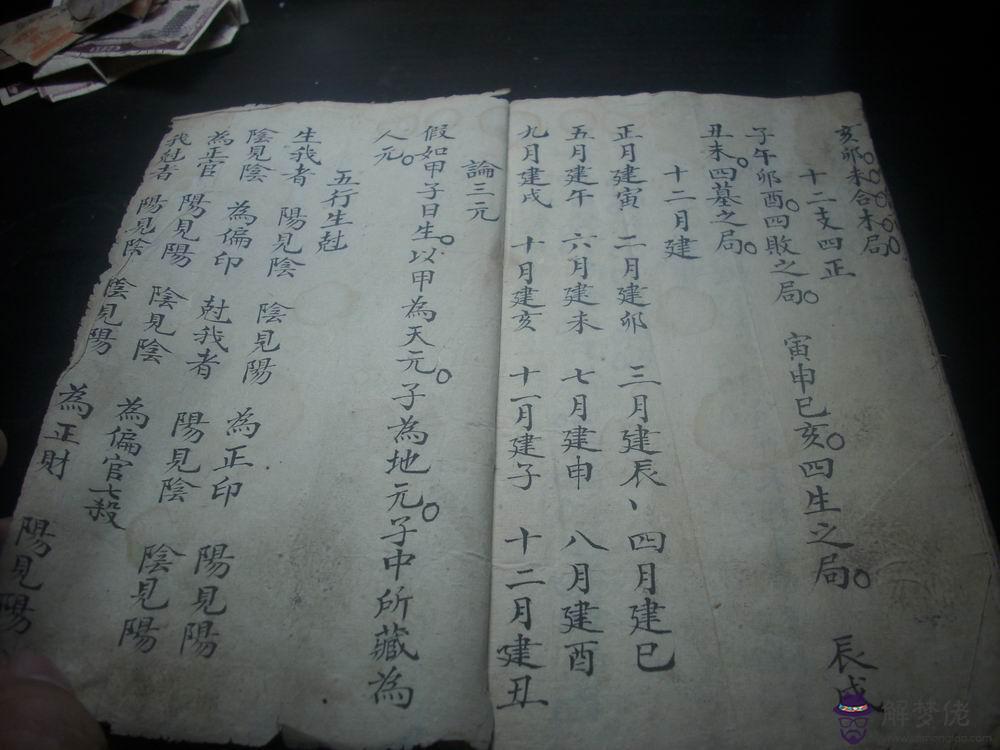 亥卯未合木局
十二支四正
子午卯酉。四敗之局。 寅申巳亥。四生之局。 辰戌
丑未。四墓之局。
十二月建
正月建寅 二月建卯 三月建辰、四月建巳
五月建午 六月建未 七月建申 八月建酉
九月建戌 十月建亥 十一月建子 十二月建丑
論三元
假如甲子日生。以甲為天元。子為地元。子中所藏為
人元。
五行生尅
生我者 陽見陰 陰見陽 為正印 陽見陽
陰見陰 為偏印 尅我者 陽見陰 陰見陽
為正官 陽見陽 陰見陰 為偏官七殺
我尅者 陽見陰 陰見陽 為正財 陽見陽
解梦佬